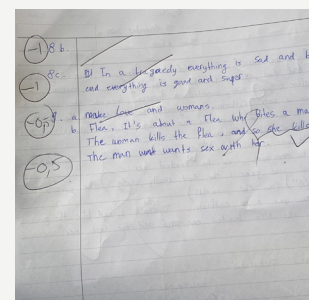 -1 8 b.
8c. In a tragedy everything is sad and b
-1 and everything is good and super.
-0,5 9. a make love and womans.
b Flea. It's about a Flea who bites a ma
The woman kills the flea, and so she kills
-0,5 The man wants sex with her